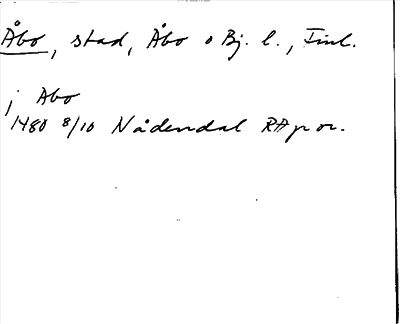 Åbo, stad, Åbo o Bj. l., Finl.
i Abo
1480 8/10 Nådendal RA p or.